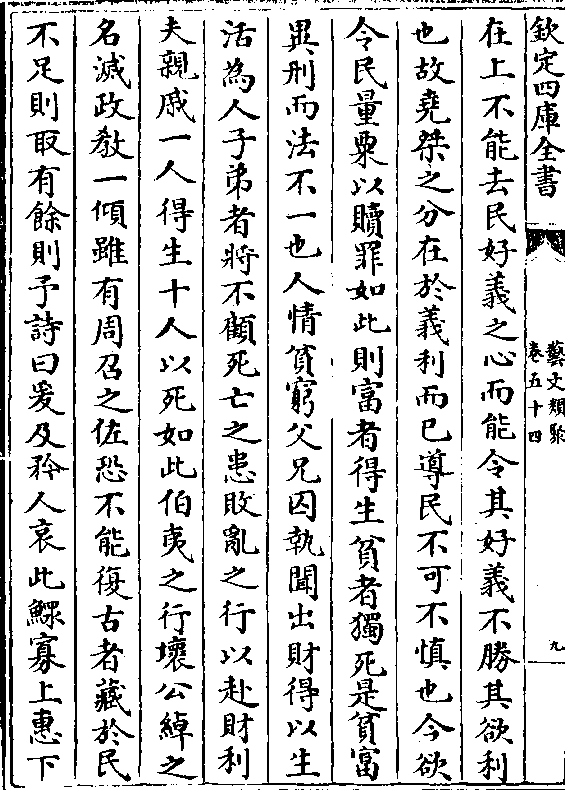 欽定四庫全書
藝文類聚
卷五十四
九
在上不能去民好義之心而能令其好義不勝其欲利
也故堯桀之分在於義利而已導民不可不慎也今欲
令民量粟以贖罪如此則富者得生貧者獨死是貧富
異刑而法不一也人情貧窮父兄囚執聞出財得以生
活為人子弟者將不顧死亡之患敗亂之行以赴財利
夫親戚一人得生十人以死如此伯夷之行壞公綽之
名滅政教一傾雖有周召之佐恐不能復古者藏於民
不足則取有餘則予詩曰爰及矜人哀此鰥寡上惠下